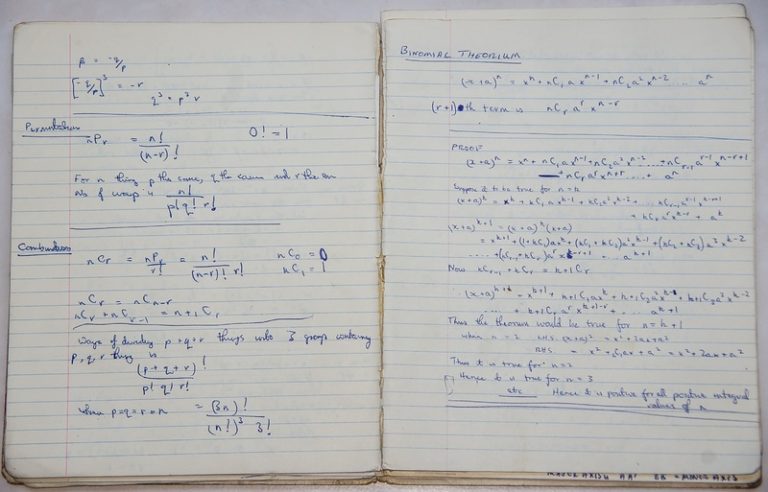 β = -q/p
[-q/p]³ = -r
q³ = p³ r
Permutations
nPr = n!/(n-r)!
0! = 1
For n things p the same, q the same and r the
No of ways is n!/p! q! r!
Combinations
nCr = nPr/r! = n!/(n-r)! r!
nC0 = 0
nC1 = 1
nCr = nCn-r
nCr + nCr-1 = n+1Cr
Ways of dividing p+q+r things into 3 groups containing
p, q, r things is
(p+q+r)!/p! q! r!
when p=q=r=n = (3n)!/(n!)³ 3!
BINOMIAL THEORIUM
(x+a)ⁿ = xⁿ + nC1 a xⁿ⁻¹ + nC2 a² xⁿ⁻² .... aⁿ
(r+1)th term is nCr aʳ xⁿ⁻ʳ
PROOF
(x+a)ⁿ = xⁿ + nC1 a xⁿ⁻¹ + nC2 a² xⁿ⁻² .....+ nCr-1 aʳ⁻¹ xⁿ⁻ʳ⁺¹
+ nCr aʳ xⁿ⁺ʳ .... + aⁿ
Suppose it to be true for n=k
(x+a)ᵏ = xᵏ + kC1 a xᵏ⁻¹ + kC2 a² xᵏ⁻² ... + kCr-1 aʳ⁻¹ xᵏ⁻ʳ⁺¹
+ kCr aʳ xᵏ⁻ʳ + aᵏ
(x+a)ᵏ⁺¹ = (x+a)ᵏ (x+a)
= xᵏ⁺¹ + (1+kC1) a xᵏ + (kC1 + kC2) a² xᵏ⁻¹ + (kC2 + kC3) a³ xᵏ⁻²
.... + (kCr-1 + kCr) aʳ x ᵏ⁻ʳ⁺¹ ... aᵏ⁺¹
Now kCr-1 + kCr = k+1Cr
(x+a)ᵏ⁺¹ = xᵏ⁺¹ + k+1C1 a xᵏ + k+1C2 a² xᵏ⁻¹ + k+1C3 a³ xᵏ⁻²
.... + k+1Cr aʳ xᵏ⁺¹⁻ʳ .... + aᵏ⁺¹
Thus the theorem would be true for n = k+1
when n = 2 LHS (x+a)² = x² + 2ax + a²
RHS = x² + 2C1 ax + a² = x² + 2ax + a²
Thus it is true for n=2
Hence it is true for n = 3
etc Hence it is positive for all positive integral
values of n
MAJOR AXIS = AA' BB' = MINOR AXIS